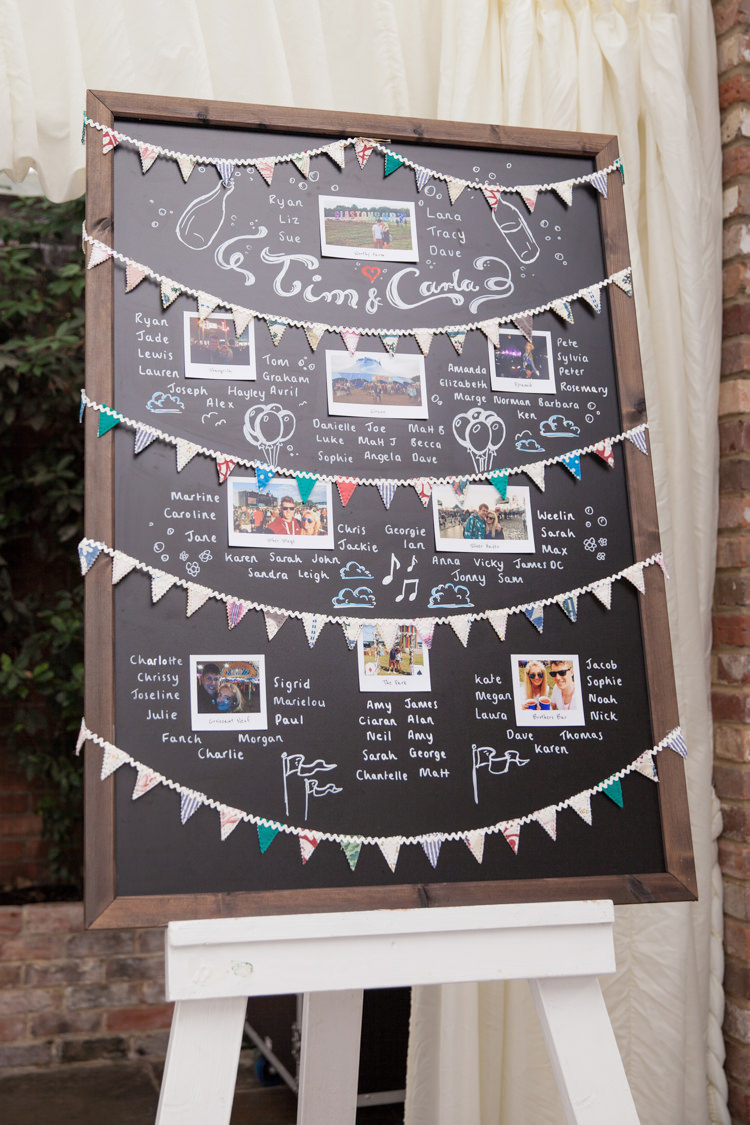 Ryan
Liz
Sue
Lana
Tracy
Dave
Tim & Carla
Ryan
Jade
Lewis
Lauren
Tom
Graham
Joseph Hayley Avril
Alex
Danielle Joe Matt B
Luke Matt J Becca
Sophie Angela Dave
Amanda
Elizabeth
Marge Norman Barbara
Ken
Pete
Sylvia
Peter
Rosemary
Martine
Caroline
Jane
Chris
Jackie
Karen Sarah John
Sandra Leigh
Georgie
Ian
Anna Vicky James DC
Jonny Sam
Weelin
Sarah
Max
Charlotte
Chrissy
Joseline
Julie
Sigrid
Marielou
Paul
Fanch Morgan
Charlie
The Park
Amy James
Ciaran Alan
Neil Amy
Sarah George
Chantelle Matt
Kate
Megan
Laura
Jacob
Sophie
Noah
Nick
Dave Thomas
Karen